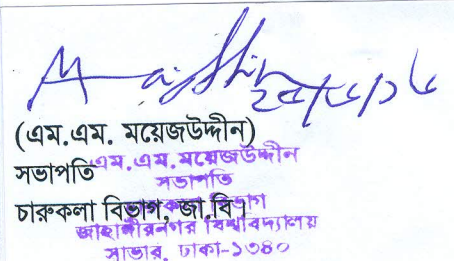 (এম.এম. ময়েজউদ্দীন)
সভাপতি
চারুকলা বিভাগ, জা.বি।
এম.এম.ময়েজউদ্দীন
সভাপতি
চারুকলা বিভাগ
জাহাঙ্গীরনগর বিশ্ববিদ্যালয়
সাভার, ঢাকা-১৩৪০